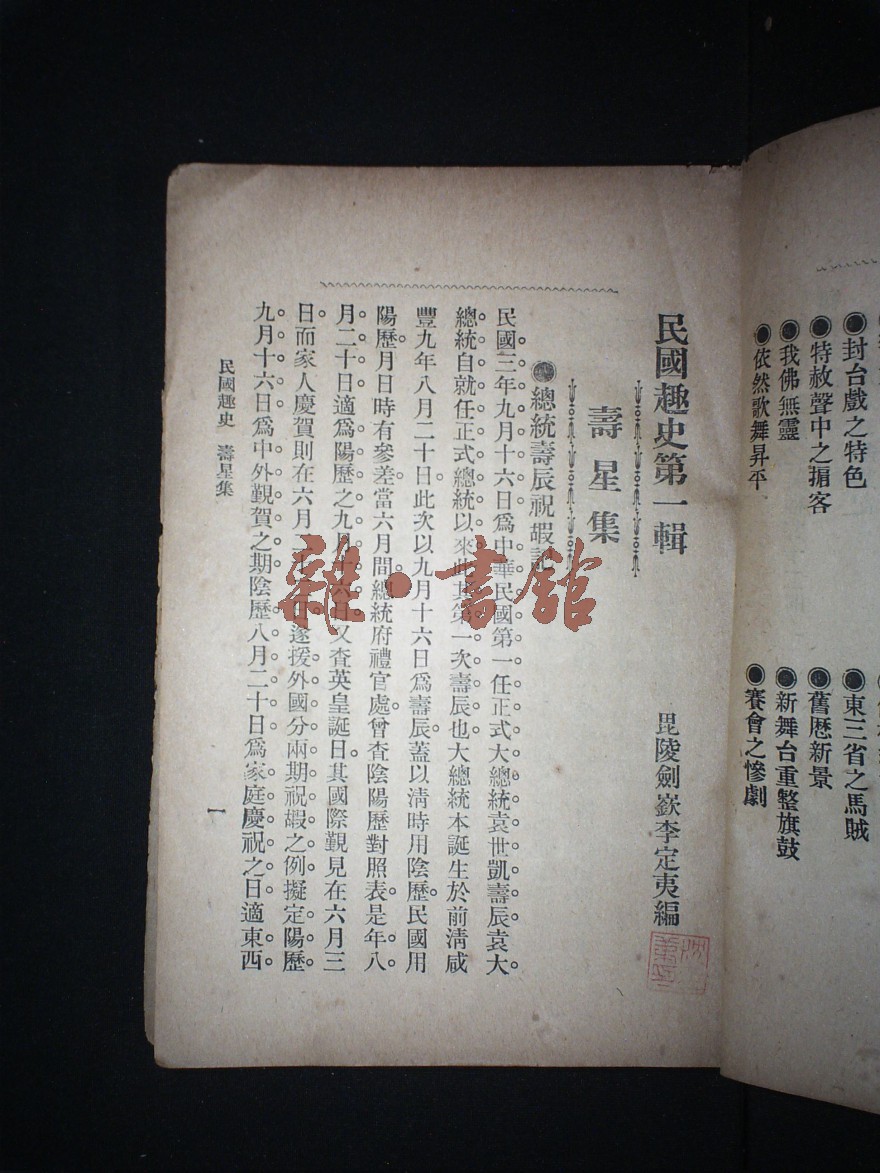 ●封台戲之特色
●東三省之馬賊
●特赦聲中之掮客
●舊歷新景
●我佛無靈
●新舞台重整旗鼓
●依然歌舞昇平
●賽會之慘劇
民國趣史第一輯
毘陵劍嶔李定夷編
壽星集
●總統壽辰祝嘏記
民國三年九月十六日爲中華民國第一任正式大總統袁世凱壽辰袁大
總統自就任正式總統以來此其第一次壽辰也大總統本誕生於前淸咸
豐九年八月二十日此次以九月十六日爲壽辰蓋以淸時用陰歷民國用
陽歷月日時有參差當六月間總統府禮官處曾查陰陽歷對照表是年八
月二十日適爲陽歷之九月十六日又查英皇誕日其國際覲見在六月三
日而家人慶賀則在六月二日遂援外國分兩期祝嘏之例擬定陽歷
九月十六日爲中外覲賀之期陰歷八月二十日爲家庭慶祝之日適東西
民國趣史 壽星集
一
雜·書館